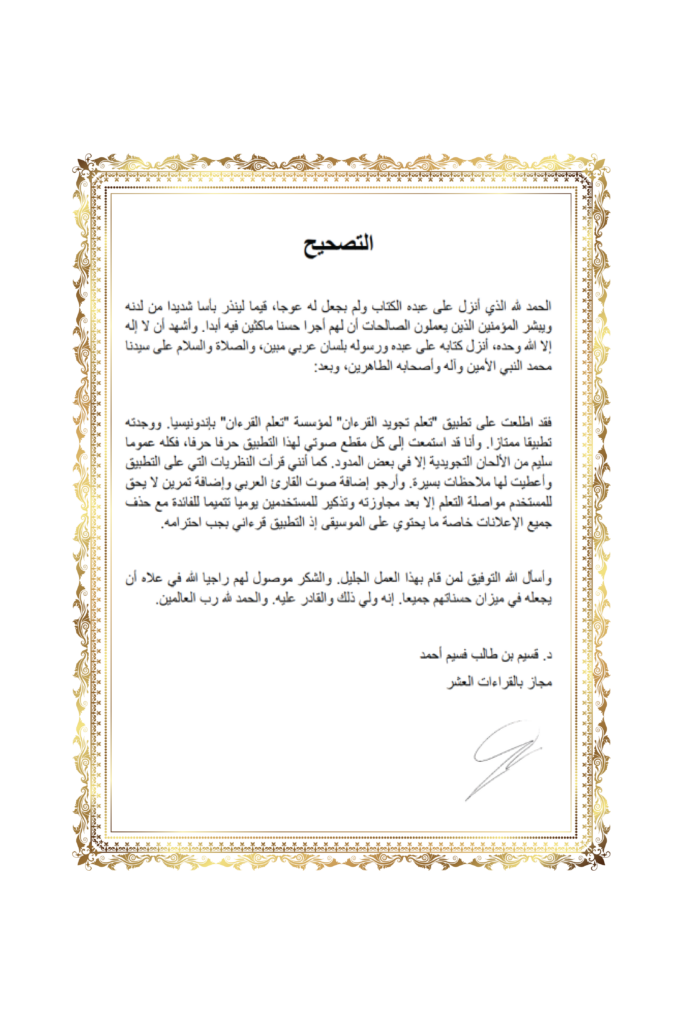 التصحيح
الحمد لله الذي أنزل على عبده الكتاب ولم يجعل له عوجا، قيما لينذر بأسا شديدا من لدنه
ويبشر المؤمنين الذين يعملون الصالحات أن لهم أجرا حسنا ماكثين فيه أبدا. وأشهد أن لا إله
إلا الله وحده، أنزل كتابه على عبده ورسوله بلسان عربي مبين، والصلاة والسلام على سيدنا
محمد النبي الأمين وآله وأصحابه الطاهرين، وبعد:
فقد اطلعت على تطبيق "تعلم تجويد القرءان" لمؤسسة "تعلم القرءان" بإندونيسيا. ووجدته
تطبيقا ممتازا. وأنا قد استمعت إلى كل مقطع صوتي لهذا التطبيق حرفا حرفا، فكله عموما
سليم من الألحان التجويدية إلا في بعض المدود. كما أنني قرأت النظريات التي على التطبيق
وأعطيت لها ملاحظات يسيرة. وأرجو إضافة صوت القارئ العربي وإضافة تمرين لا يحق
للمستخدم مواصلة التعلم إلا بعد مجاوزته وتذكير للمستخدمين يوميا تتميما للفائدة مع حذف
جميع الإعلانات خاصة ما يحتوي على الموسيقى إذ التطبيق قرءاني يجب احترامه.
وأسأل الله التوفيق لمن قام بهذا العمل الجليل. والشكر موصول لهم راجيا الله في علاه أن
يجعله في ميزان حسناتهم جميعا. إنه ولي ذلك والقادر عليه. والحمد لله رب العالمين.
د. قسيم بن طالب قسيم أحمد
مجاز بالقراءات العشر